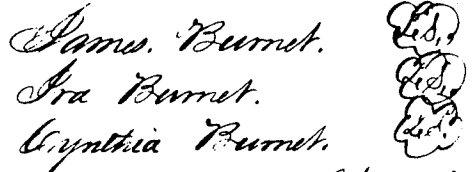 James. Burnet. L.S.
Ira Burnet. L.S.
Cynthia Burnet. L.S.